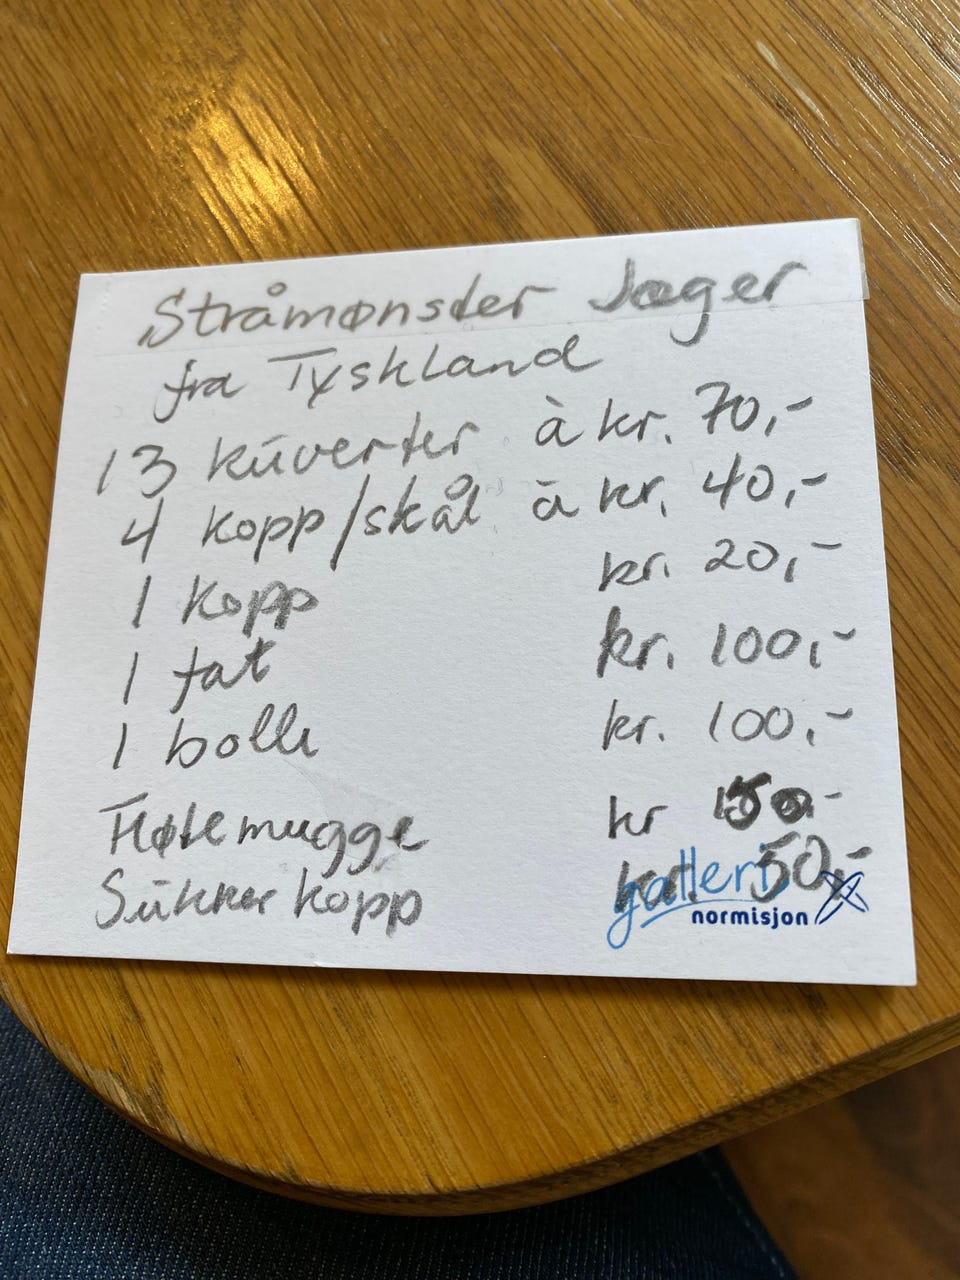 Stråmønster Jæger
fra Tyskland
13 kúverter à kr. 70,-
4 kopp/skål à kr. 40,-
1 kopp kr. 20,-
1 fat kr. 100,-
1 bolle kr. 100,-
Fløtemugge kr 50,-
Sukker kopp kr. 50,-
galleri
normisjon